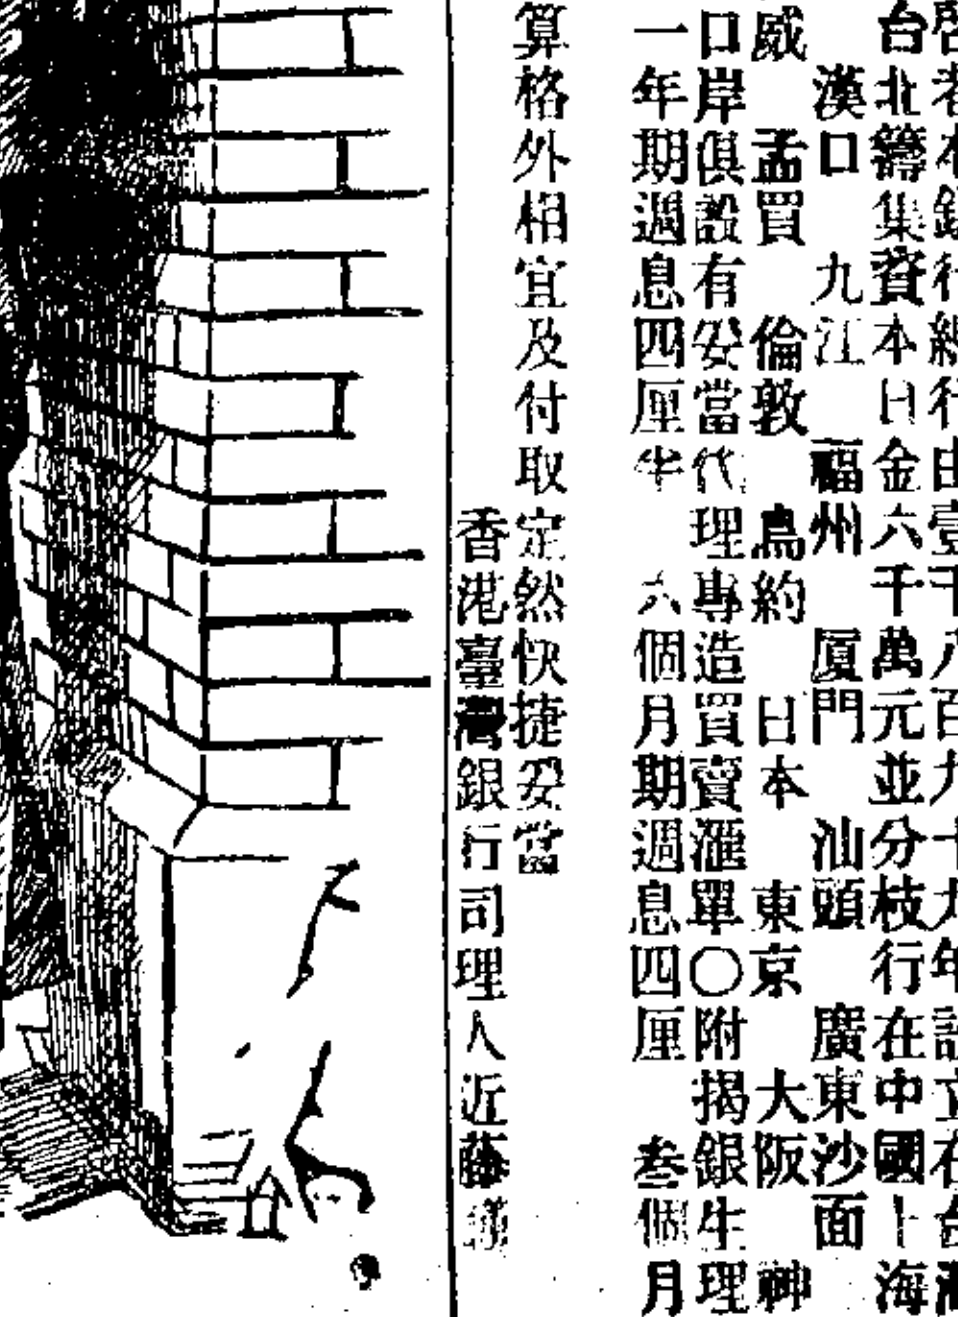 本銀行總行由壹千八百九十九年設立在台灣
台北籌集資本日金六千萬元並分枝行在中國上海
漢口 九江 福州 厦門 汕頭 廣東沙面
威 孟買 倫敦 鳥約 日本 東京 大阪 神
口岸俱設有妥當代理專造買賣滙單〇附揭銀生理
一年期週息四厘半 六個月期週息四厘 叁個月
算格外相宜及付取定然快捷妥當
香港臺灣銀行司理人近藤